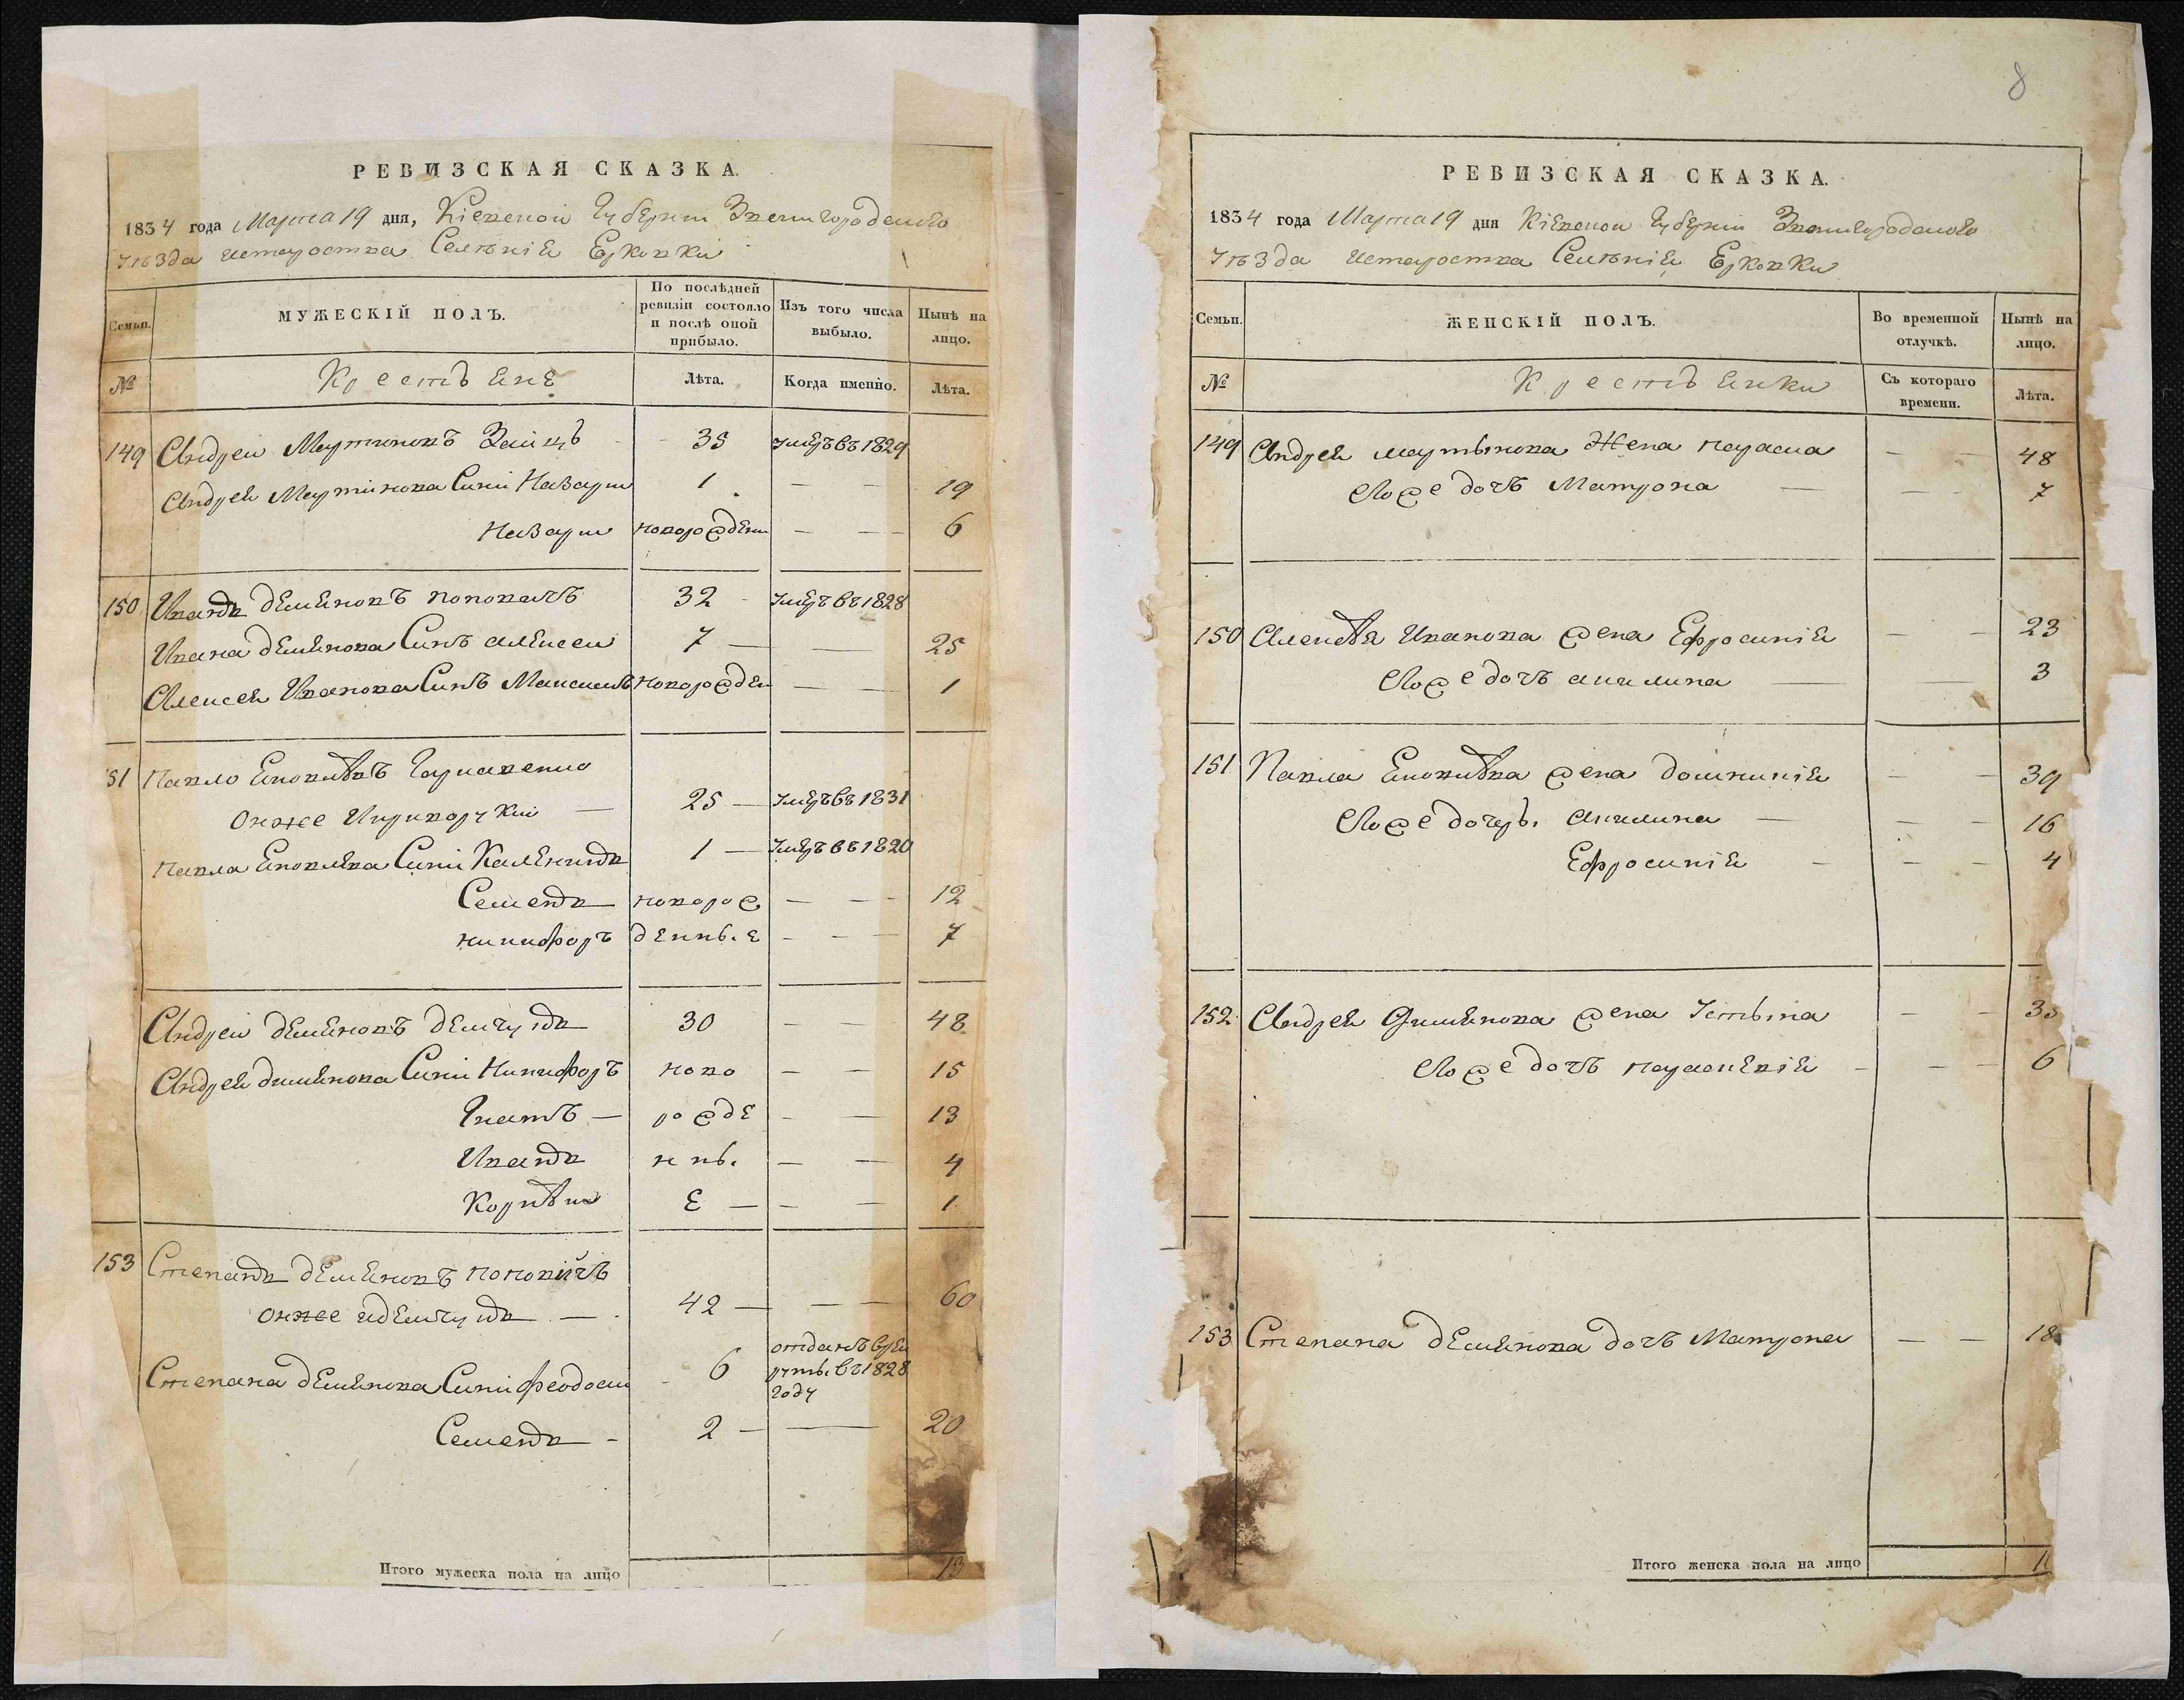 РЕВИЗСКАЯ СКАЗКА.
1834 года Марта 19 дня, Кіевской Губерніи Звенигородского
Уѣзда Селѣнія Ерковки
Семьи.
МУЖЕСКІЙ ПОЛЪ.
По послѣдней ревизіи состояло и послѣ оной прибыло.
Изъ того числа выбыло.
Нынѣ на лицо.
№
Крестьяне
Лѣта.
Когда именно.
Лѣта.
149 Андрей Мартиновъ Заицъ 35 умеръ въ 1829
Андрея Мартинова Сини Назарий 1 — — 19
Назарий новорожден — — 6
150 Иванъ деменовъ поповичъ 32 умеръ въ 1828
Ивана деменова Синъ алексеи 7 — — 25
Алексея Иванова Синъ Максимъ новорожден — — 1
151 Павло Яковлѣвъ
онже 25 — умеръ въ 1831
Павла Яковлева Сини 1 — умеръ въ 1820
Семенъ новорож — — 12
никифоръ денные — — 7
Андреи деменовъ демчукъ 30 — — 48
Андрея дименова Сини Никифоръ ново — — 15
Гнатъ — рожде — — 13
Иванъ нны — — 4
Корнѣи е — — 1
153 Степанъ деменовъ поповичъ
онже идемчукъ — 42 — — 60
Степана деменова Сини феодосии 6 отданъ врек
руты въ 1828
году
Семенъ — 2 — — 20
Итого мужеска пола на лицо 13
8
РЕВИЗСКАЯ СКАЗКА.
1834 года Марта 19 дня Кіевской Губерніи Звенигородского
Уѣзда Селѣнія Ерковки
Семьи.
ЖЕНСКІЙ ПОЛЪ.
Во временной отлучкѣ.
Нынѣ на лицо.
№
Крестьянки
Съ котораго времени.
Лѣта.
149 Андрея мартынова Жена параска — — 48
Ягоже дочъ Матрона — — — 7
150 Алексѣя Иванова жена Ефросинія — — 23
Ягоже дочъ акилина — — 3
151 Павла Яковлѣва жена домникія — — 39
Ягоже дочеръ. Акилина — — — 16
Ефросинія — — — 4
152 Андрея Дименова жена Устына — — 35
Ягоже дочъ параскевія — — — 6
153 Степана деменова дочъ Матрона — — 18
Итого женска пола на лицо 11